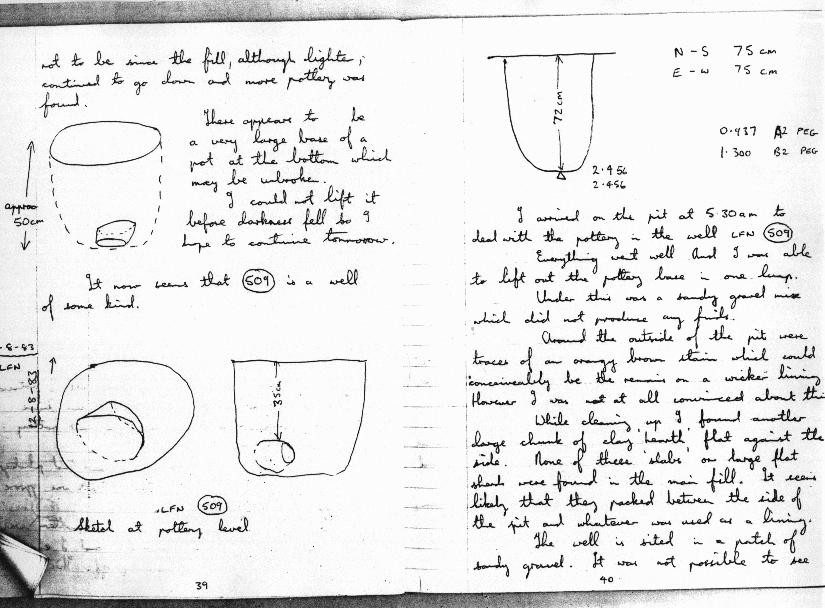 not to be since the fill, although lighter,
continued to go down and more pottery was
found.
There appears to be
a very large base of a
pot at the bottom which
may be unbroken.
I could not lift it
before darkness fell so I
hope to continue tomorrow.
approx
50cm
It now seems that 509 is a well
of some kind.
-8-83
LFN
12-8-83
35cm
LFN 509
Sketch at pottery level
39
72cm
N-S 75 cm
E-W 75 cm
0.437 A2 PEG
1.300 B2 PEG
2.456
2.456
I arrived on the pit at 5.30am to
deal with the pottery in the well LFN 509
Everything went well and I was able
to lift out the pottery base in one lump.
Under this was a sandy gravel mix
which did not produce any finds.
Around the outside of the pit were
traces of an orangy brown stain which could
conceiveably be the remains on a wicker lining
However I was not at all convinced about this
While cleaning up I found another
large chunk of clay 'hearth' flat against the
side. None of these 'slabs' or large flat
sherds were found in the main fill. It seems
likely that they packed between the side of
the pit and whatever was used as a lining.
The well is sited in a patch of
sandy gravel. It was not possible to see
40